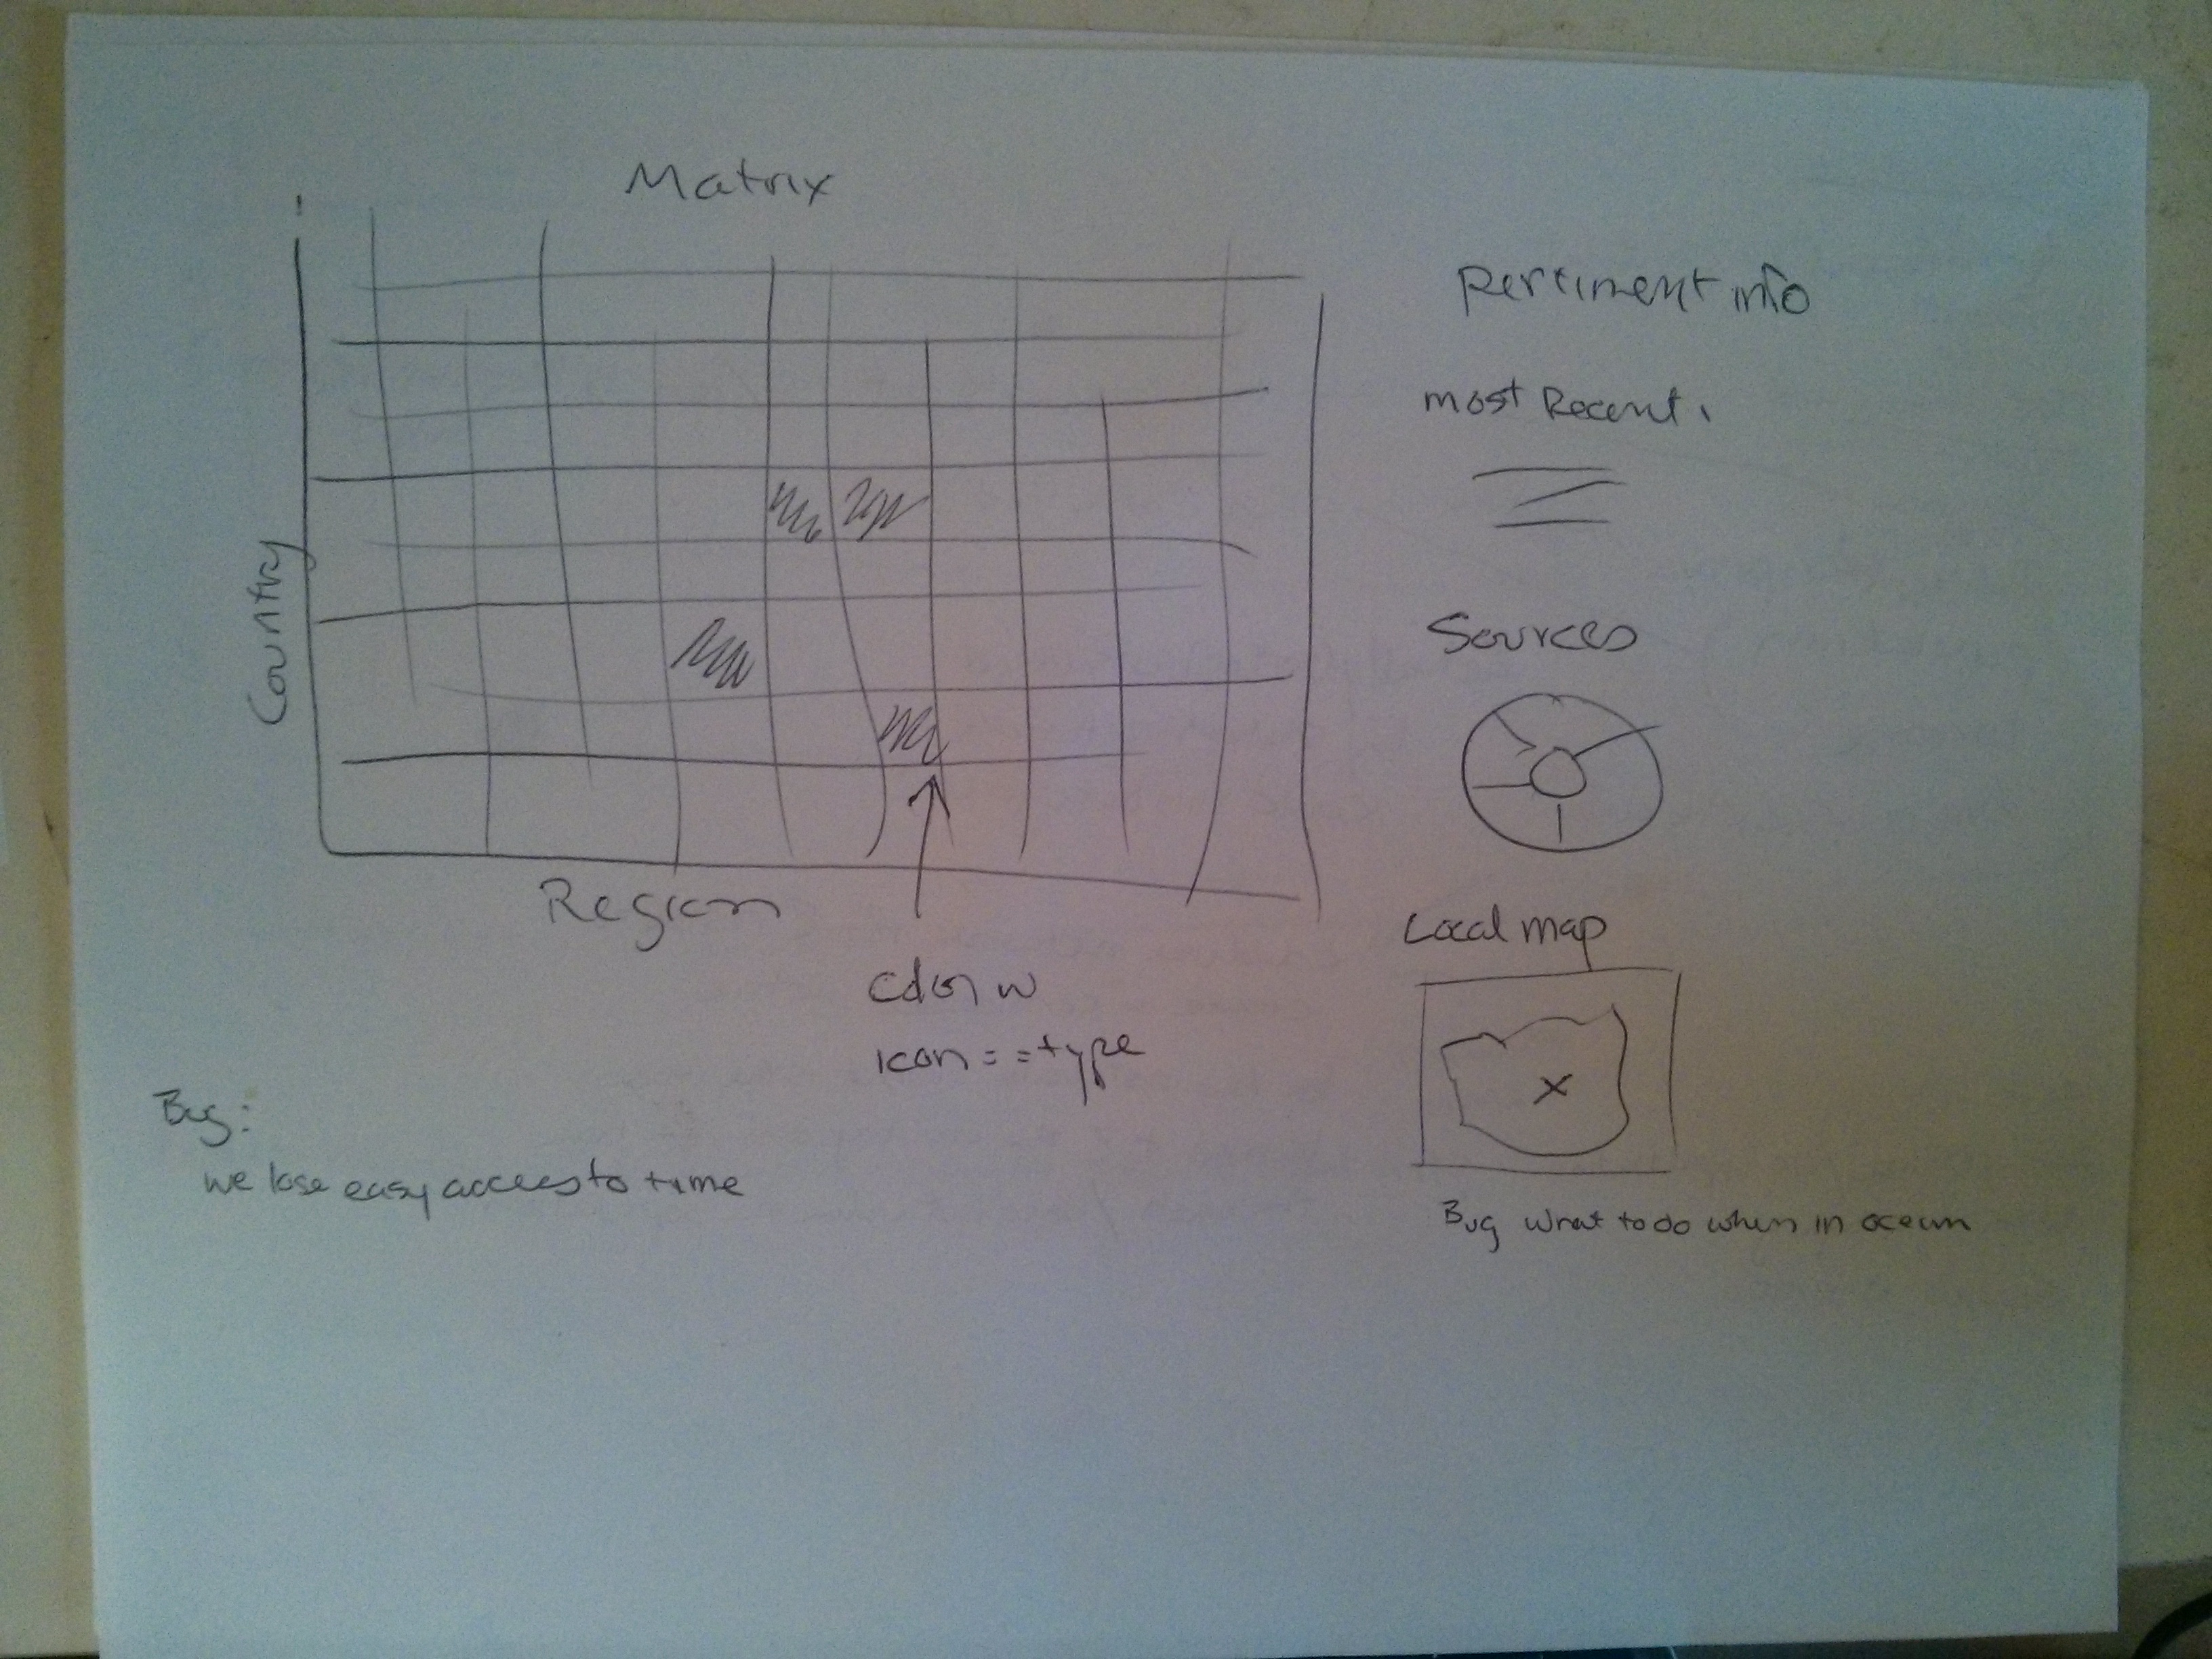 Matrix
Country
Region
Color w
icon = = type
Bug:
we lose easy access to time
Pertiment info
most Recent.
Sources
Local map
Bug what to do when in ocean